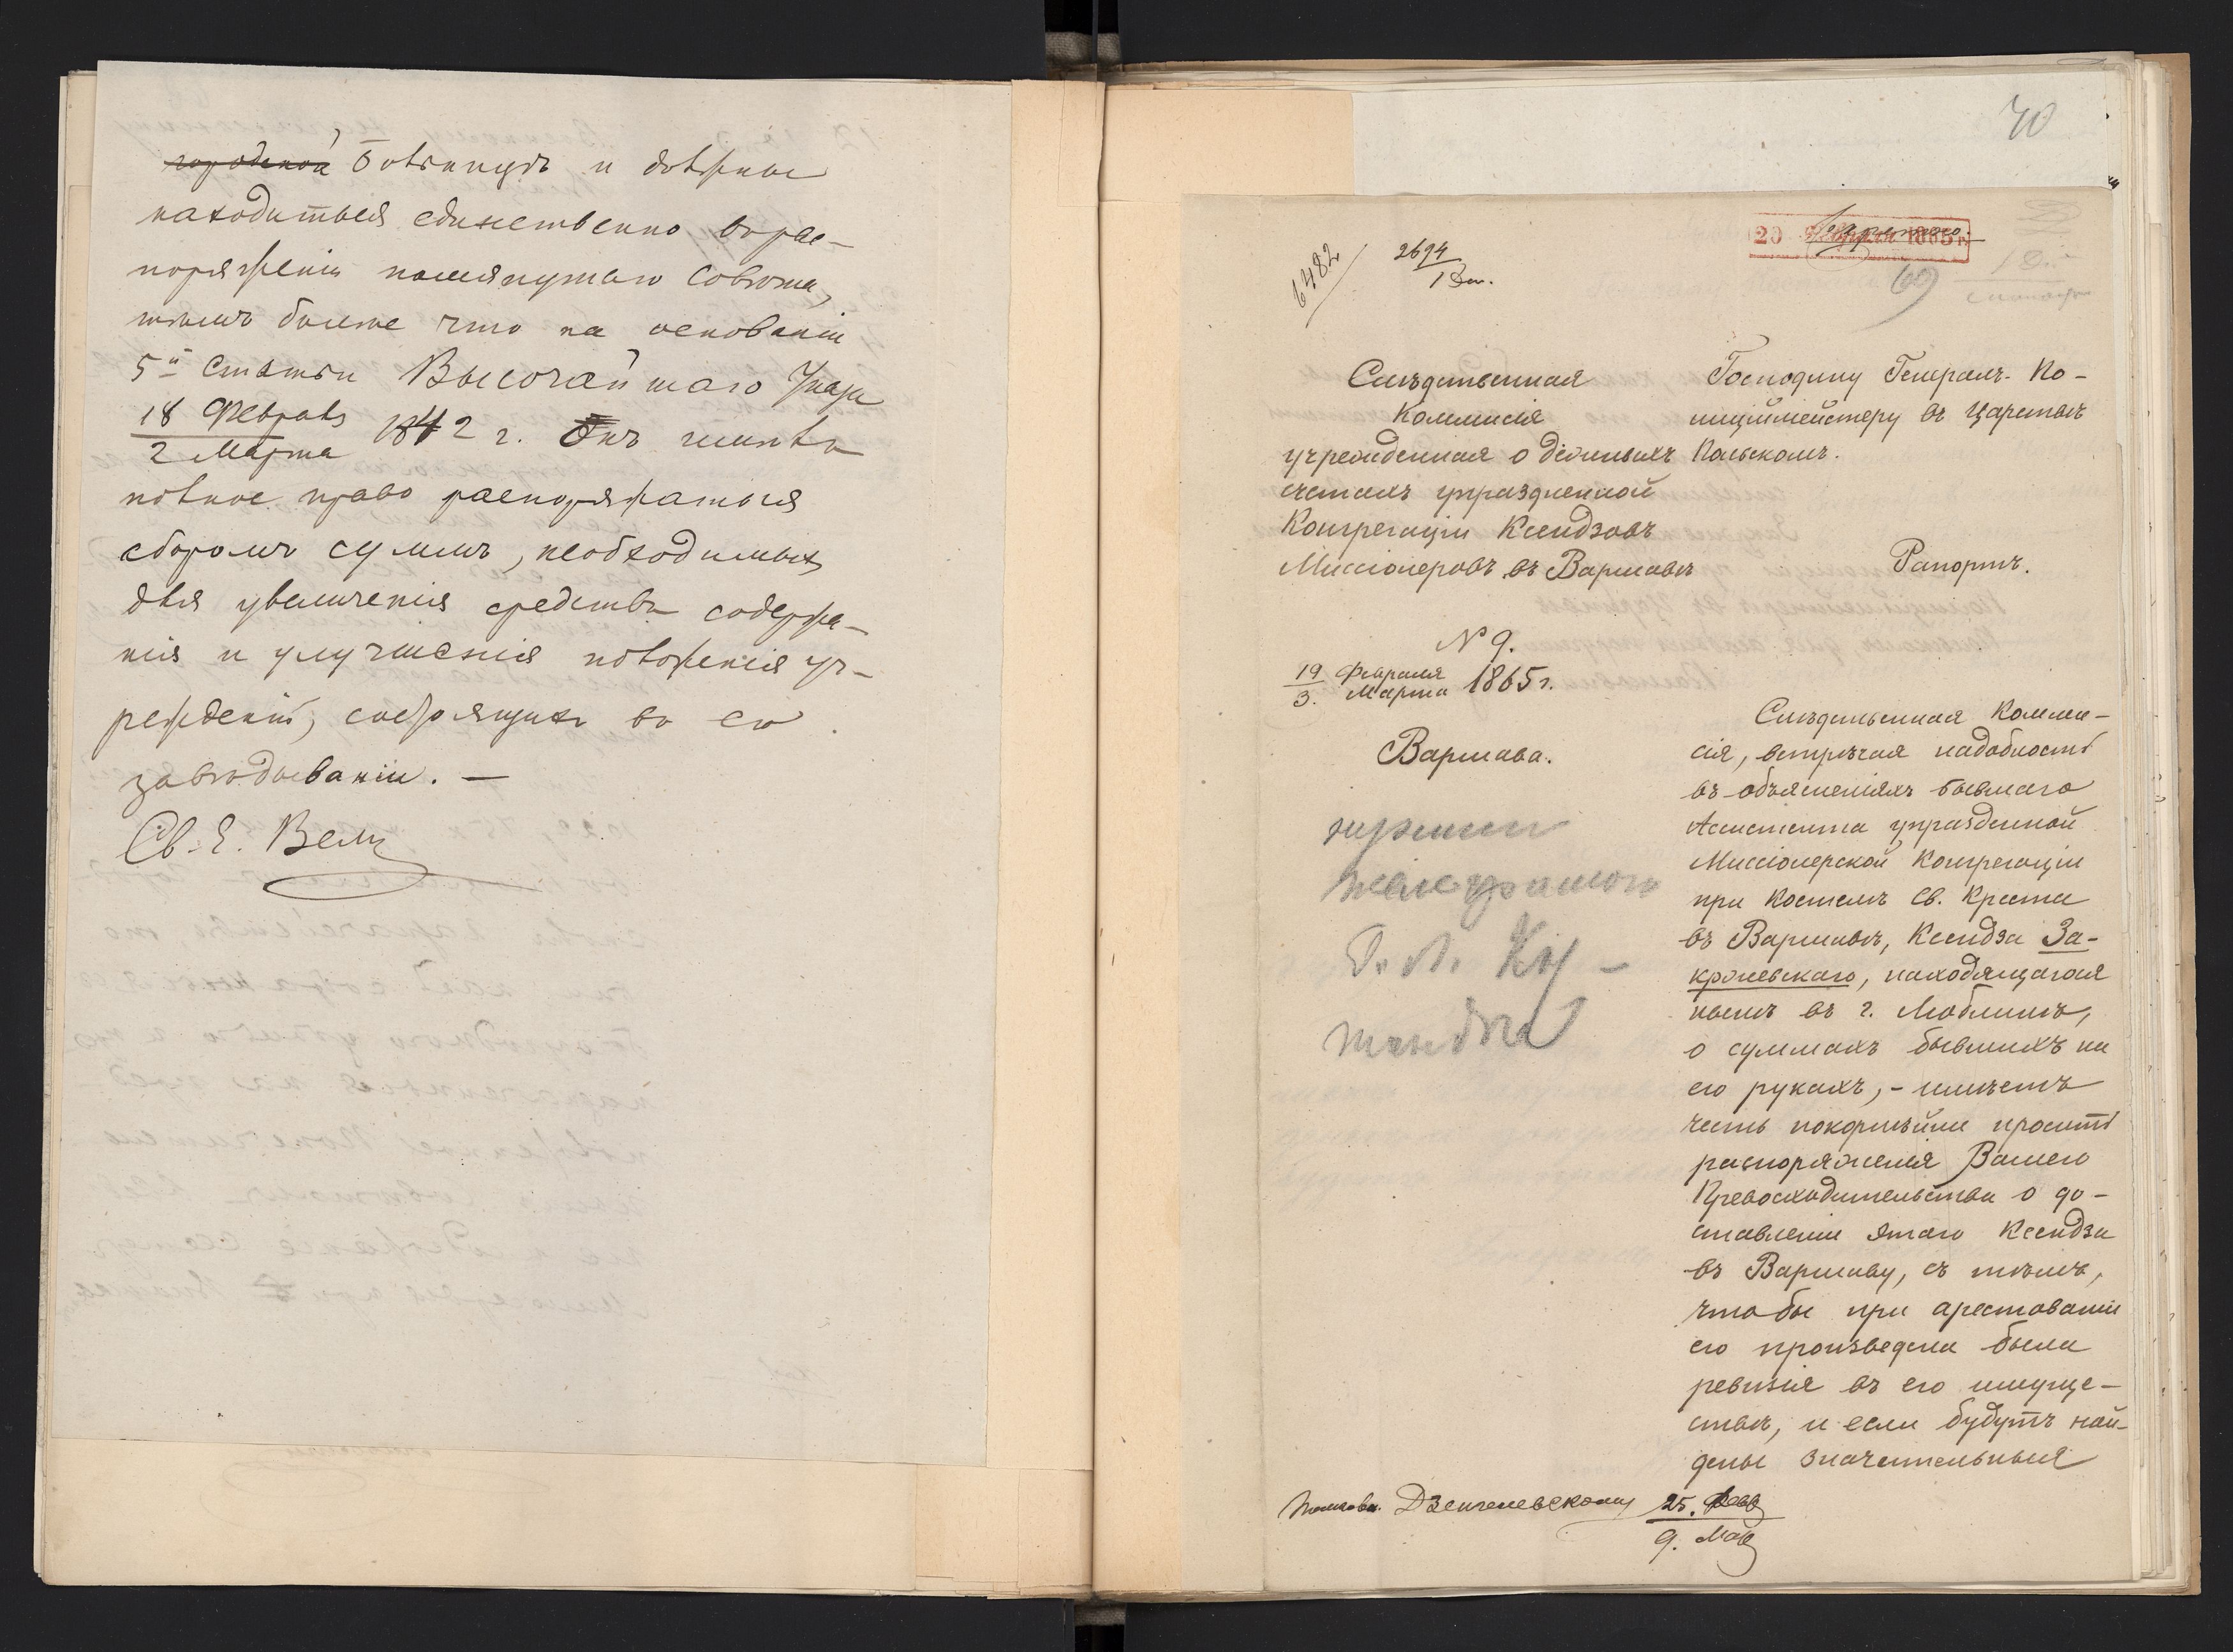 городской больницѣ и должны
находиться единственно въ рас-
поряженіи помянутаго Совѣта,
тѣмъ болѣе что на основаніи
5й Статьи Высочайшаго Указа
18 Февраля
2 Марта 1842 г. Онъ имѣлъ
полное право распоряжаться
сборомъ суммъ, необходимыхъ
для увеличенія средствъ содержа-
нія и улучшенія положенія уч-
режденій, состоящихъ въ его
завѣдываніи. —
70
20 Февраля 1865 г.
6482
2694
69
Слѣдственная
Коммисія
учрежденная о
счетахъ упраздненной
Конгрегаціи Ксендзовъ
Миссіонеровъ въ Варшавѣ
№ 9.
19 Февраля
3. Марта 1865 г.
Варшава.
Господину Генералъ-По-
лиціймейстеру въ Царствѣ
Польскомъ.
Рапортъ.
Слѣдственная Комми-
сія, встрѣчая надобность
въ объясненіяхъ бывшаго
Ассистента упраздненной
Миссіонерской Конгрегаціи
при Костелѣ Св. Креста
въ Варшавѣ, Ксендза За-
крочевскаго, находящагося
нынѣ въ г. Люблинѣ,
о суммахъ бывшихъ на
его рукахъ, - имѣетъ
честь покорнѣйше просить
распоряженія Вашего
Превосходительства о до-
ставленіи этаго Ксендза
въ Варшаву, съ тѣмъ,
чтобы при арестованіи
его произведена была
ревизія въ его имуще-
ствѣ, и если будутъ най-
дены значительныя
телеграммою
25. Февр
9. Мар